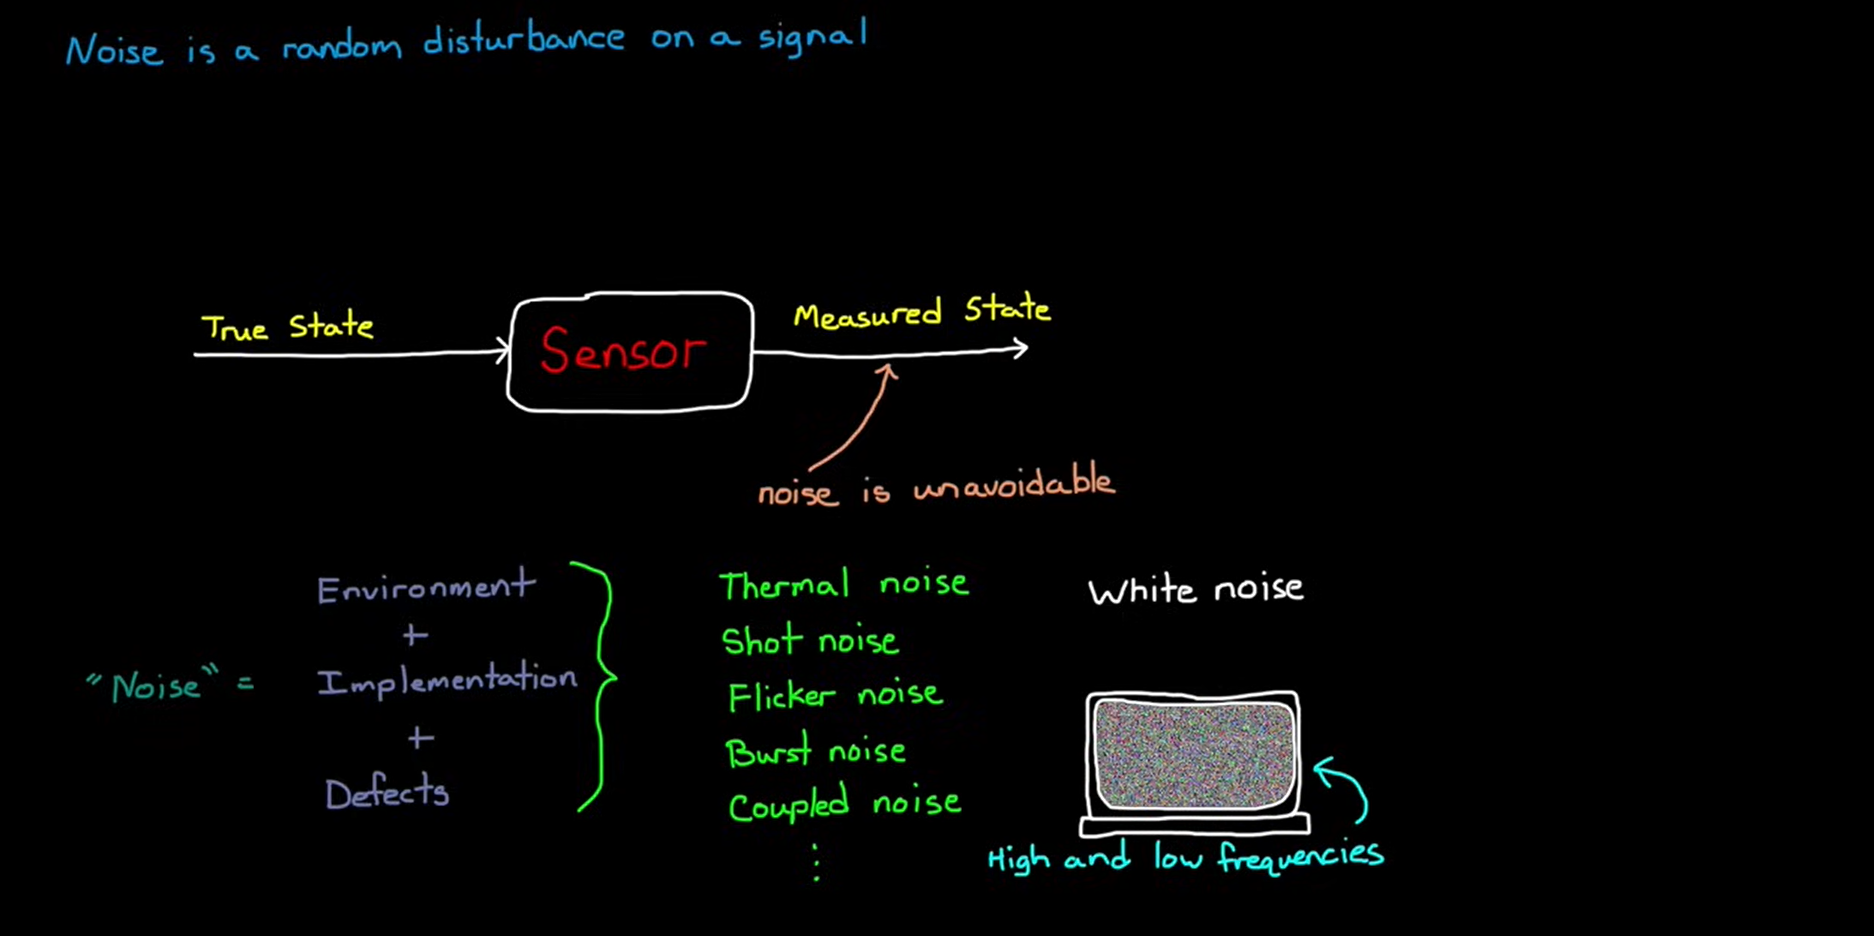 Noise is a random disturbance on a signal
True State
Sensor
Measured State
noise is unavoidable
"Noise" =
Environment
+
Implementation
+
Defects
Thermal noise
Shot noise
Flicker noise
Burst noise
Coupled noise
⋮
White noise
High and low frequencies